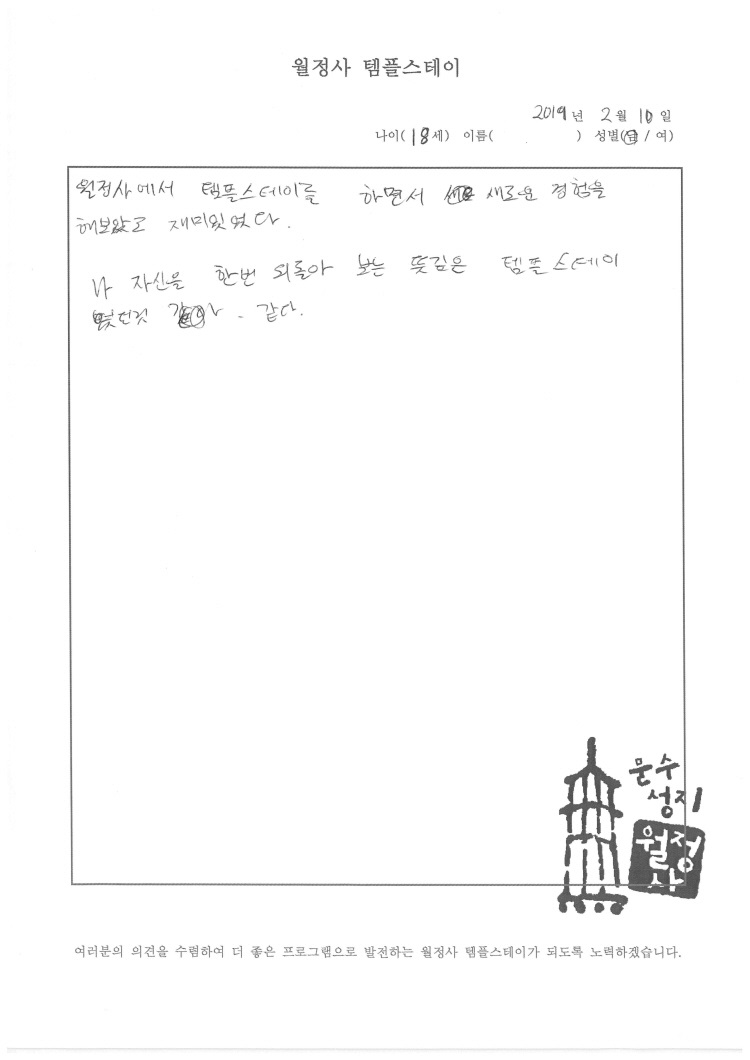 월정사 템플스테이
2019년 2월 10일
나이(18세) 이름( ) 성별(남 / 여)
월정사에서 템플스테이를 하면서 새로운 경험을
해보았고 재미있었다.
나 자신을 한번 되돌아 보는 뜻깊은 템플스테이
였던것 같다.
문수
성지
월정
사
여러분의 의견을 수렴하여 더 좋은 프로그램으로 발전하는 월정사 템플스테이가 되도록 노력하겠습니다.